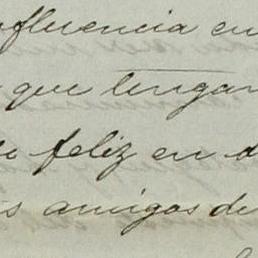 influencia en
que tengan
feliz en
amigos de